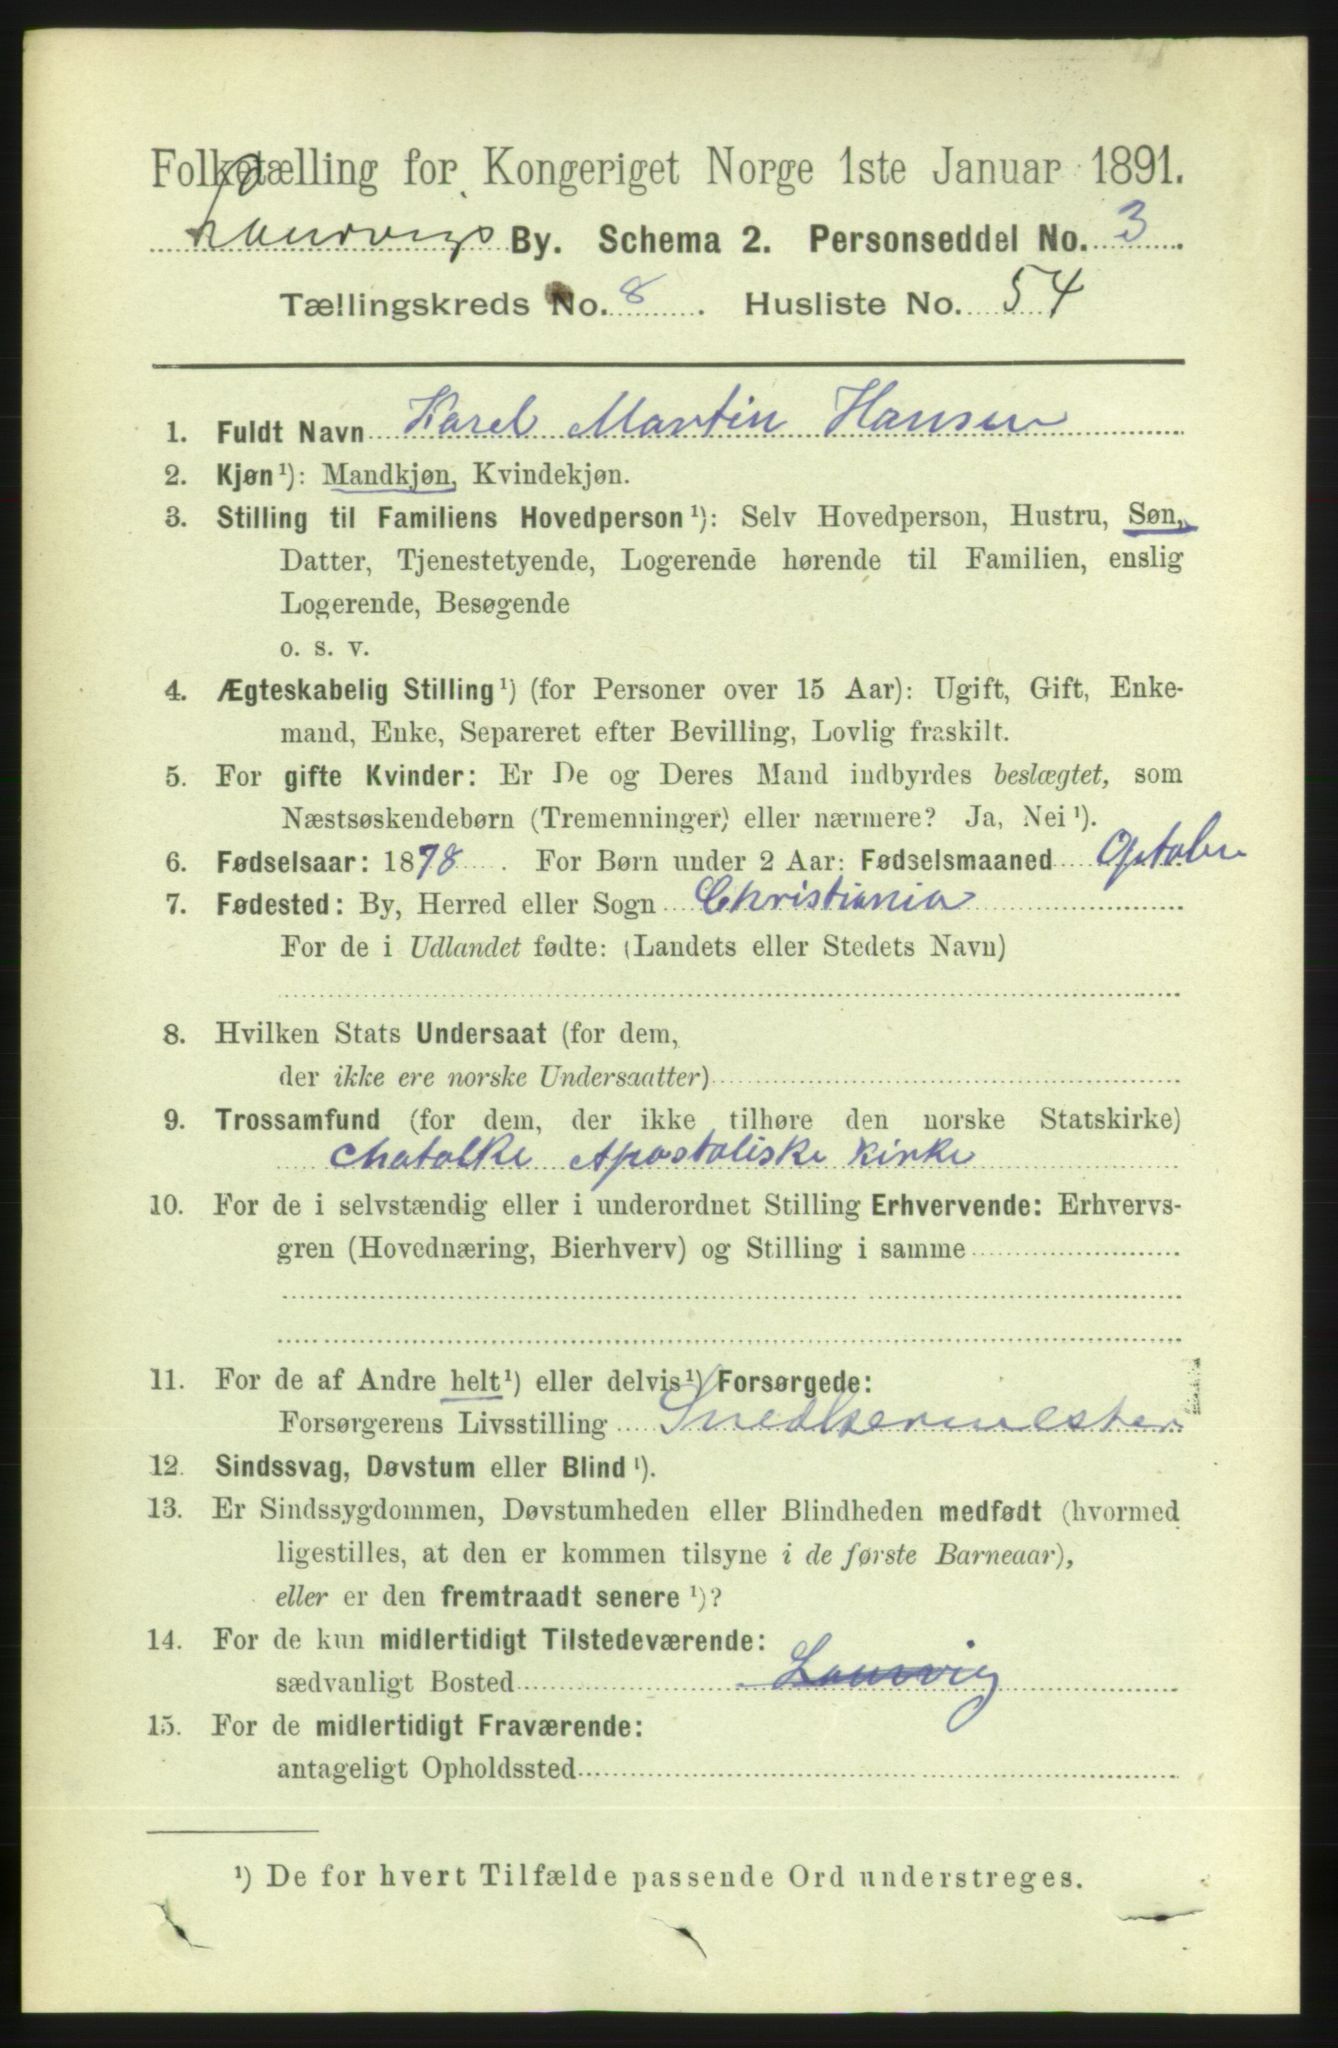 Folketælling for Kongeriget Norge 1ste Januar 1891.
Laurvigs By. Schema 2. Personseddel No. 3.
Tællingskreds No. 8. Husliste No. 54
1. Fuldt Navn Karel Martin Hansen
2. Kjøn¹): Mandkjøn, Kvindekjøn.
3. Stilling til Familiens Hovedperson¹): Selv Hovedperson, Hustru, Søn,
Datter, Tjenestetyende, Logerende hørende til Familien, enslig
Logerende, Besøgende
o. s. v.
4. Ægteskabelig Stilling¹) (for Personer over 15 Aar): Ugift, Gift, Enke-
mand, Enke, Separeret efter Bevilling, Lovlig fraskilt.
5. For gifte Kvinder: Er De og Deres Mand indbyrdes beslægtet, som
Næstsøskendebørn (Tremenninger) eller nærmere? Ja, Nei¹).
6. Fødselsaar: 1878. For Børn under 2 Aar: Fødselsmaaned
7. Fødested: By, Herred eller Sogn Christiania
For de i Udlandet fødte: (Landets eller Stedets Navn)
8. Hvilken Stats Undersaat (for dem,
der ikke ere norske Undersaatter)
9. Trossamfund (for dem, der ikke tilhøre den norske Statskirke)
chatolke Apostoliske kirke
10. For de i selvstændig eller i underordnet Stilling Erhvervende: Erhvervs-
gren (Hovednæring, Bierhverv) og Stilling i samme
11. For de af Andre helt¹) eller delvis¹) Forsørgede:
Forsørgerens Livsstilling Snedkermester
12. Sindssvag, Døvstum eller Blind¹).
13. Er Sindssygdommen, Døvstumheden eller Blindheden medfødt (hvormed
ligestilles, at den er kommen tilsyne i de første Barneaar),
eller er den fremtraadt senere¹)?
14. For de kun midlertidigt Tilstedeværende:
sædvanligt Bosted Laurvig
15. For de midlertidigt Fraværende:
antageligt Opholdssted
¹) De for hvert Tilfælde passende Ord understreges.